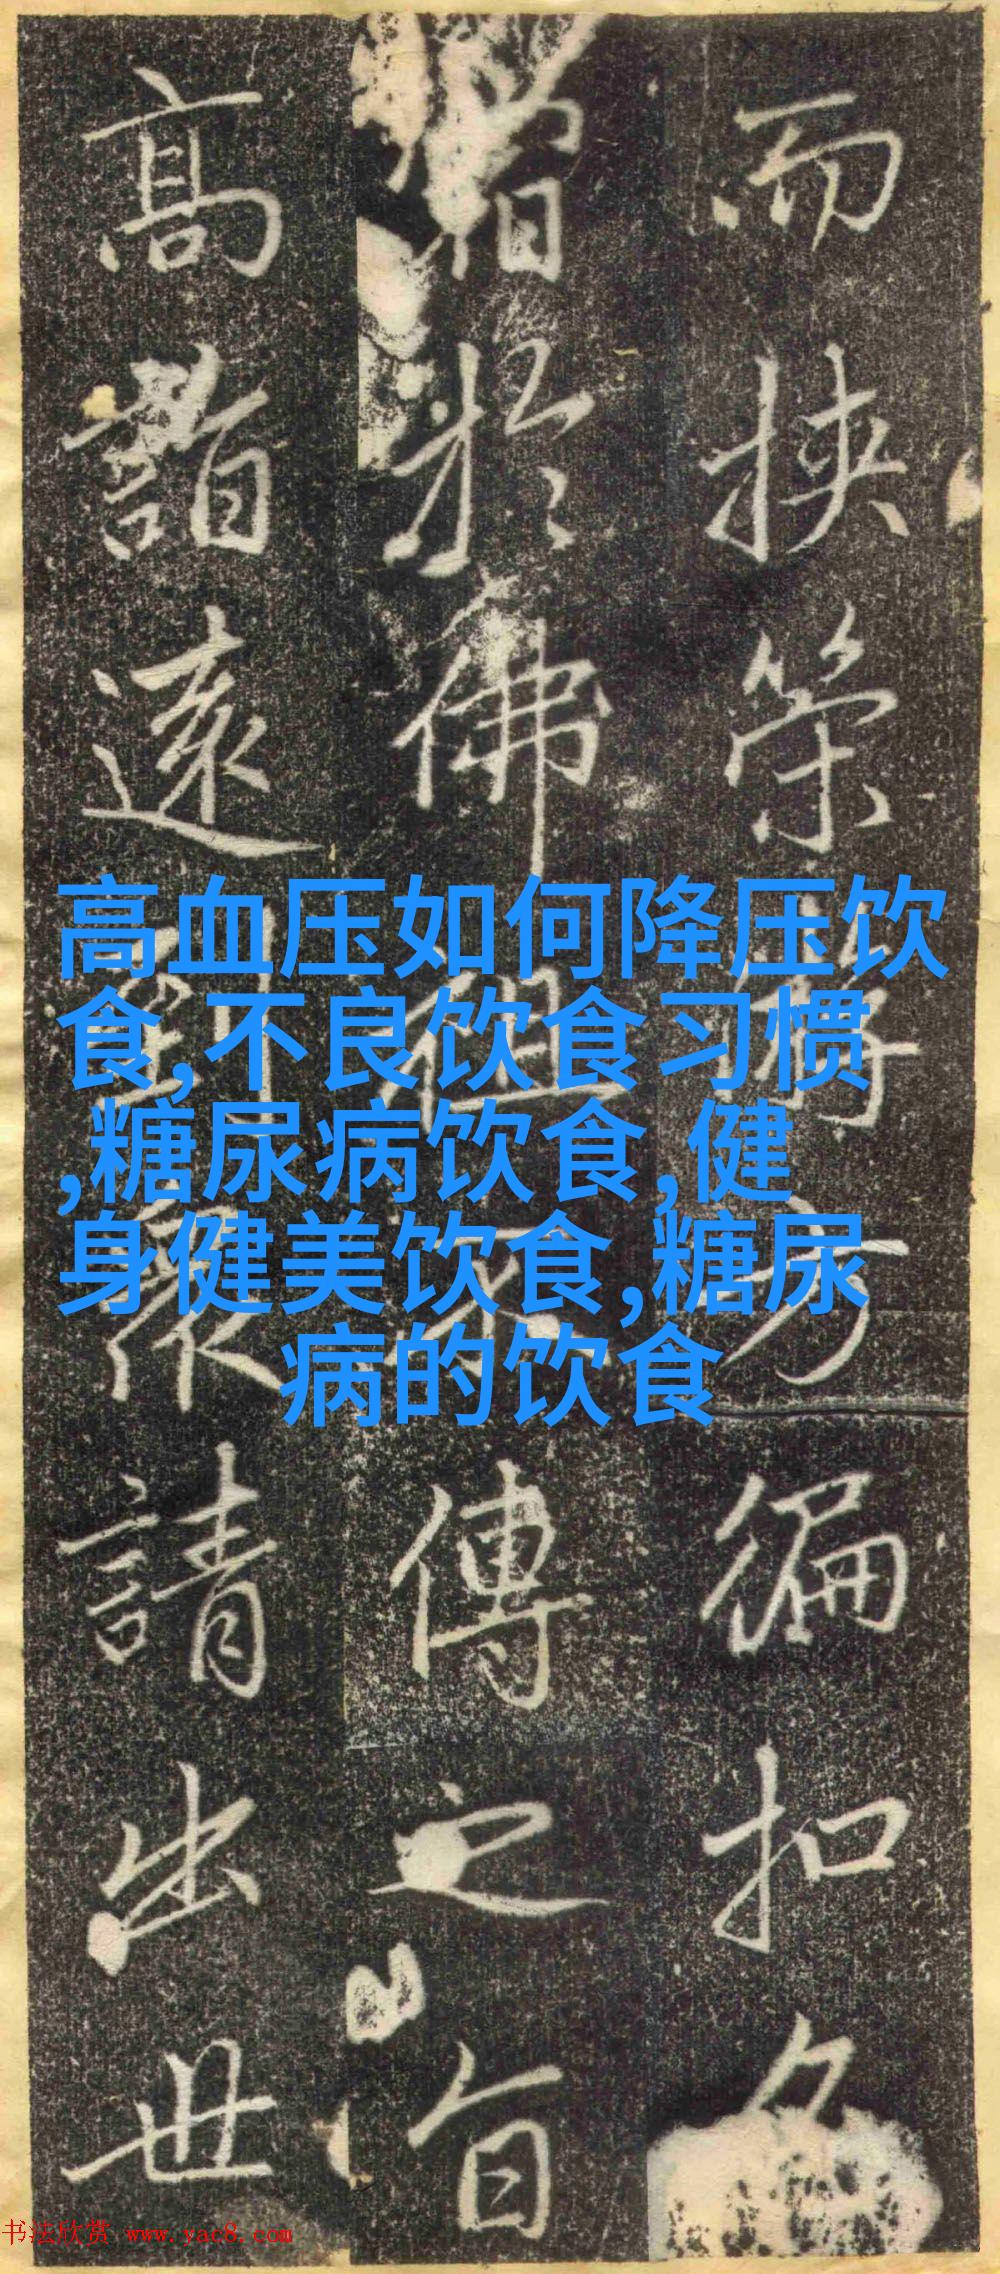 而挟策將方徧扣名
於佛祖不傳之旨
高識遠到眾請出世
高血压如何降压饮
食,不良饮食习惯
,糖尿病饮食,健
身健美饮食,糖尿
病的饮食
书法欣赏 www.yac8.com